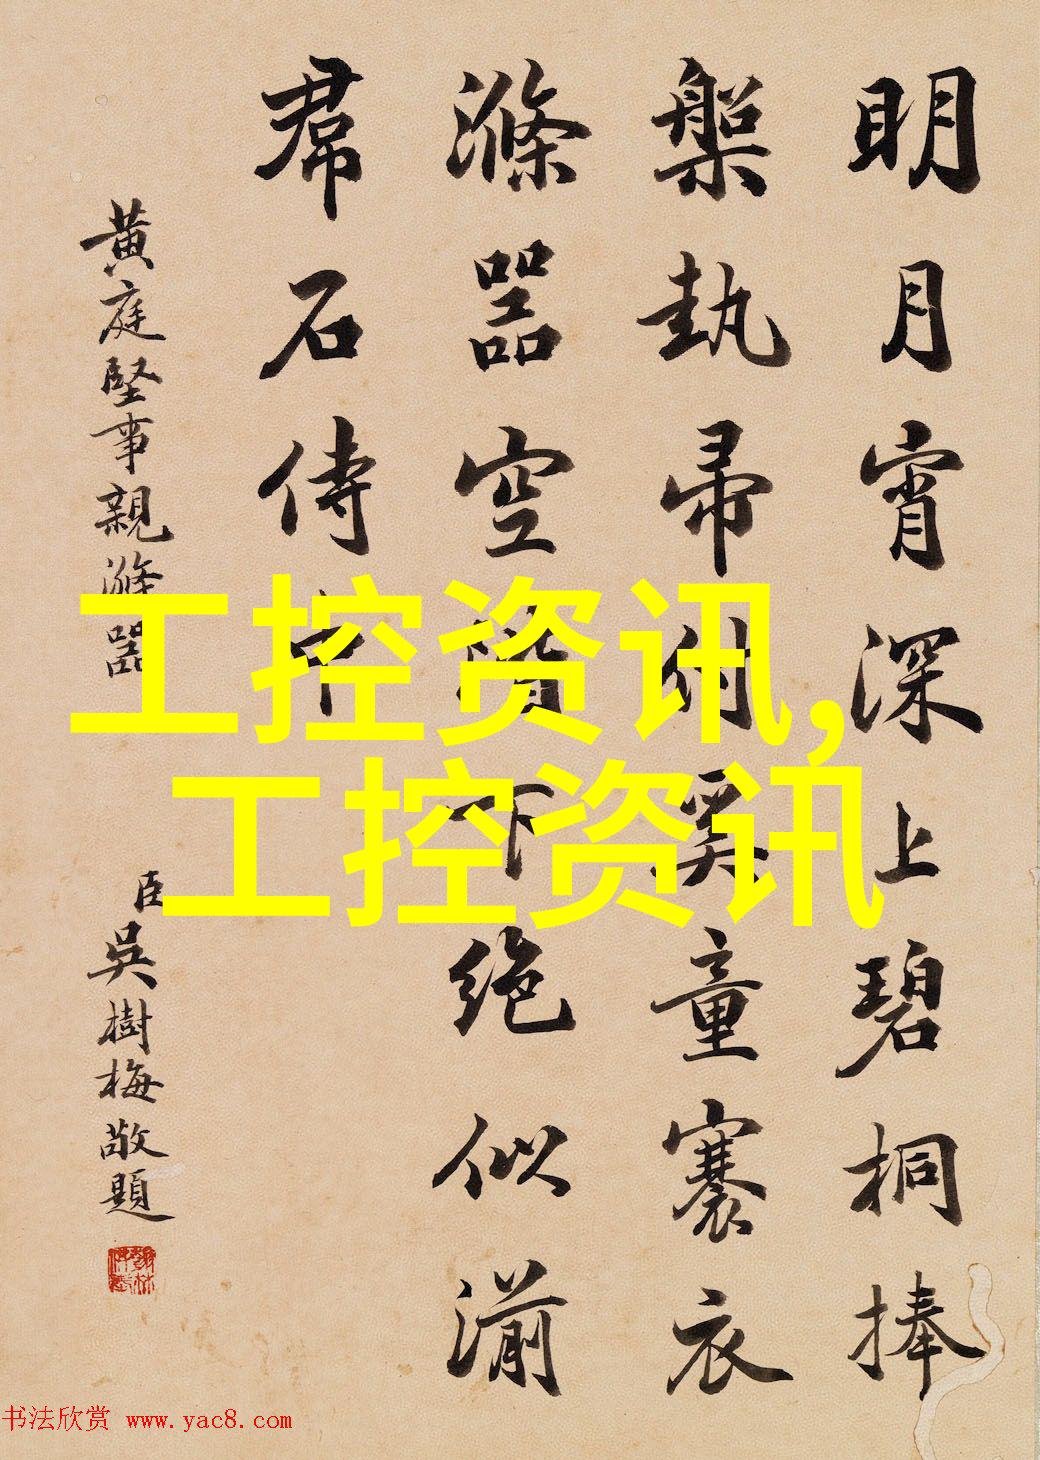 明月宵深上碧桐捧
槃執帚付奚童褰衣
滌器空階下絶似湔
帬石侍中
黃庭堅事親滌器
臣吳樹梅敬題
工控资讯,
工控资讯
书法欣赏 www.yac8.com